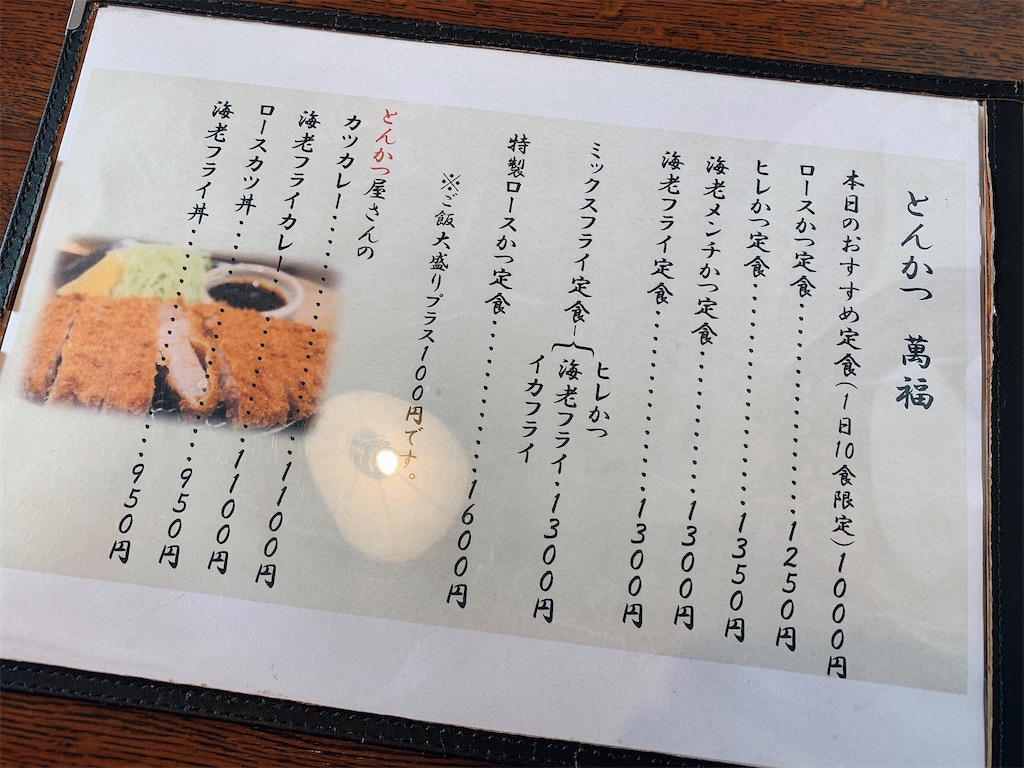 とんかつ 萬福
本日のおすすめ定食(1日10食限定)1000円
ロースかつ定食・・・・・・・・・・・・・1250円
ヒレかつ定食・・・・・・・・・・・・・・1350円
海老メンチかつ定食・・・・・・・・・・1300円
海老フライ定食・・・・・・・・・・・・・1300円
ミックスフライ定食
ヒレかつ
海老フライ・1300円
イカフライ
特製ロースかつ定食・・・・・・・・・・1600円
※ご飯大盛りプラス100円です。
とんかつ屋さんの
カツカレー・・・・・・・・・・・・・・・1100円
海老フライカレー・・・・・・・・・・・1100円
ロースカツ丼・・・・・・・・・・・・・・950円
海老フライ丼・・・・・・・・・・・・・・950円